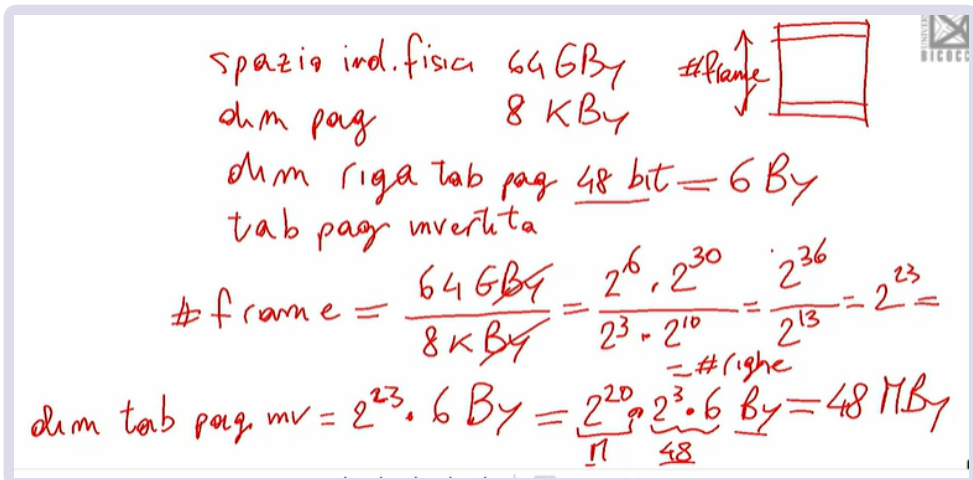 spazio ind. fisico 64 GBy
#frame
dim pag 8 KBy
dim riga tab pag 48 bit = 6 By
tab pag invertita
#frame = 64 GBy / 8 KBy = 2^6 . 2^30 / 2^3 . 2^10 = 2^36 / 2^13 = 2^23 =
= #righe
dim tab pag. inv = 2^23 . 6 By = 2^20 . 2^3 . 6 By = 48 MBy
M 48